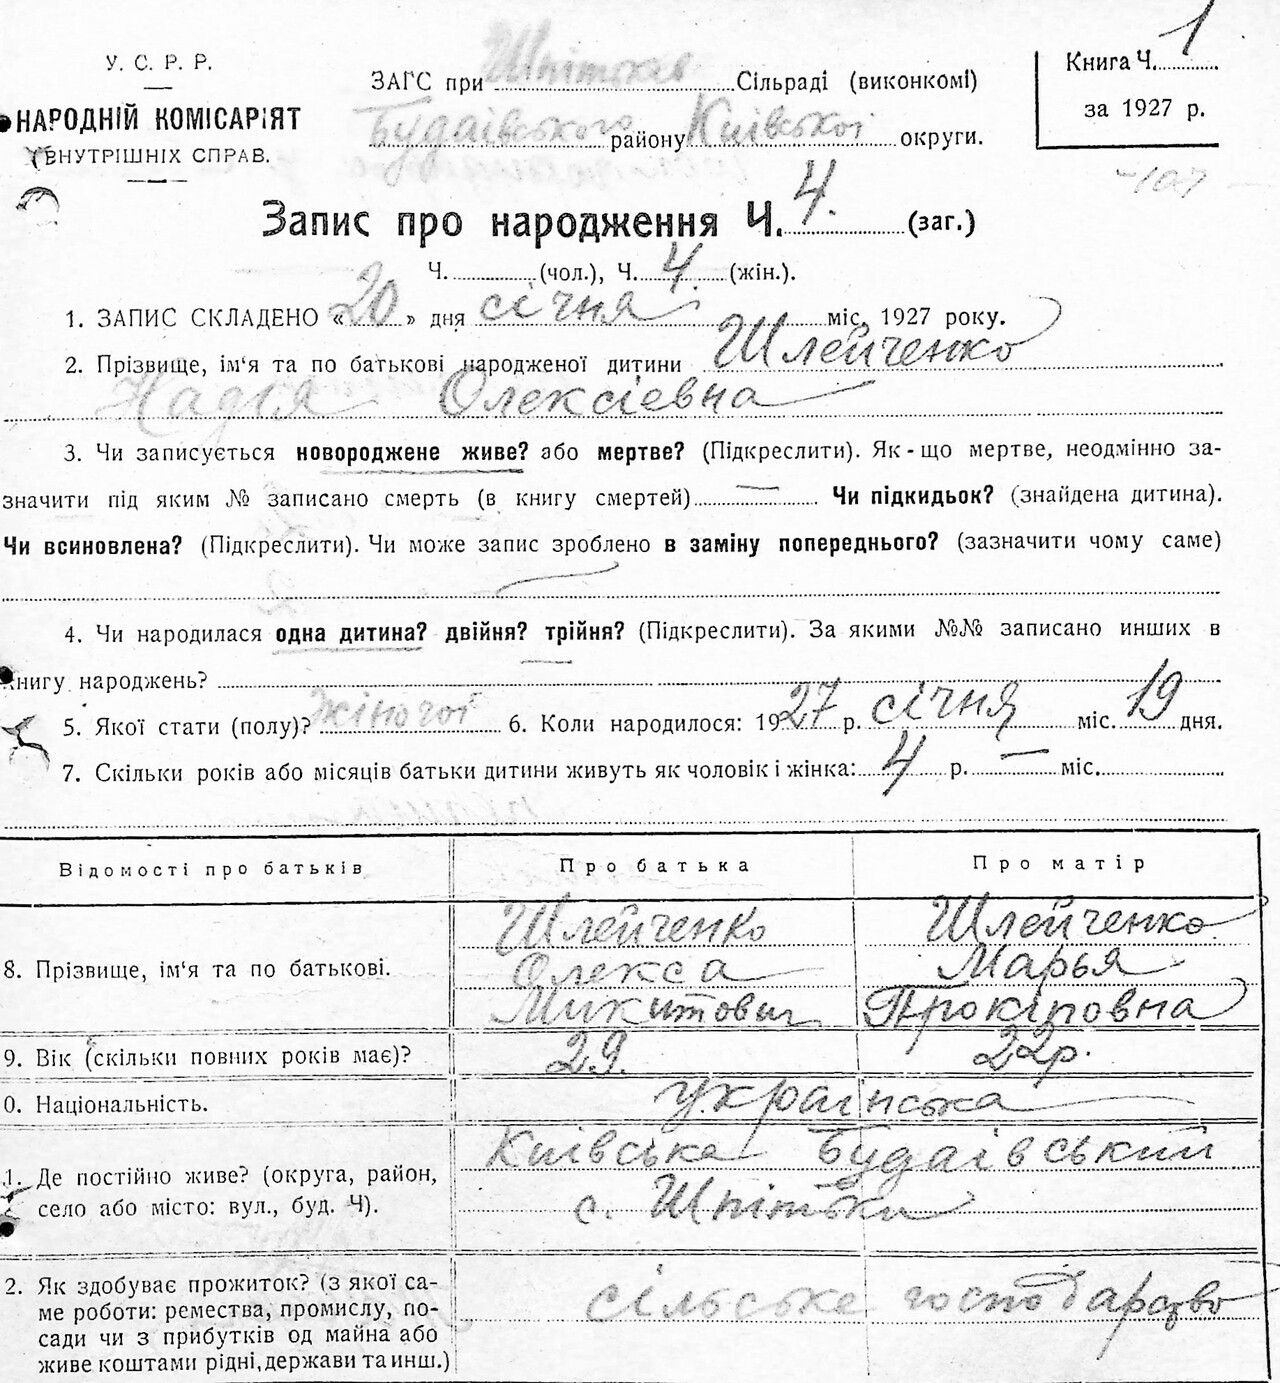 У. С. Р. Р.
НАРОДНІЙ КОМІСАРІЯТ
ВНУТРІШНІХ СПРАВ.
ЗАГС при Шпітьків Сільраді (виконкомі)
Будаівського району Київської округи.
Книга Ч. 1
за 1927 р.
107
Запис про народження Ч. 4. (заг.)
Ч. (чол.), Ч. 4. (жін.).
1. ЗАПИС СКЛАДЕНО «20» дня січня міс. 1927 року.
2. Прізвище, ім'я та по батькові народженої дитини Шлейченко
Надія Олексіевна
3. Чи записується новороджене живе? або мертве? (Підкреслити). Як-що мертве, неодмінно за-
значити під яким № записано смерть (в книгу смертей) — Чи підкидьок? (знайдена дитина).
Чи всиновлена? (Підкреслити). Чи може запис зроблено в заміну попереднього? (зазначити чому саме)
4. Чи народилася одна дитина? двійня? трійня? (Підкреслити). За якими №№ записано инших в
книгу народжень?
5. Якої стати (полу)? жіночої 6. Коли народилося: 1927 р. січня міс. 19 дня.
7. Скільки років або місяців батьки дитини живуть як чоловік і жінка: 4 р. — міс.
Відомості про батьків Про батька Про матір
8. Прізвище, ім'я та по батькові. Шлейченко Олекса Микитович Шлейченко Марья Прокіповна
9. Вік (скільки повних років має)? 29. 22р.
0. Національність. українська
1. Де постійно живе? (округа, район, Київська Будаівський
село або місто: вул., буд. Ч). с. Шпітьки
2. Як здобуває прожиток? (з якої са-
ме роботи: ремества, промислу, по- сільське господарство
сади чи з прибутків од майна або
живе коштами рідні, держави та инш.)